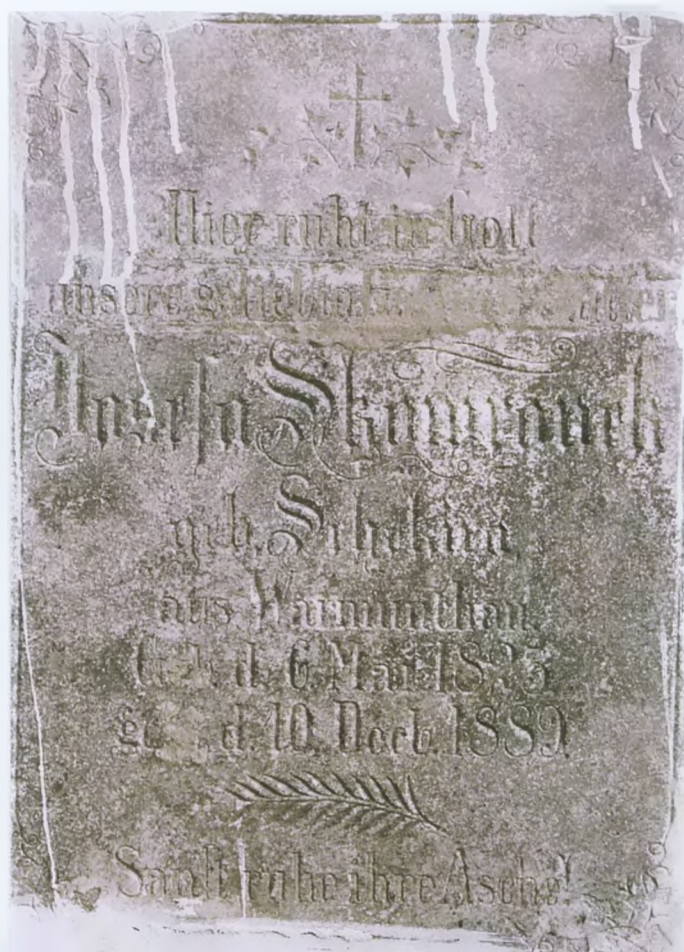 Hier ruht in Gott
unsere geliebte
Josefa Skomrouch
geb.
aus Warmunthau.
Geb. d. 6. Mai 1825
d. 10. Decb. 1889.
Sanft ruhe ihre Asche!